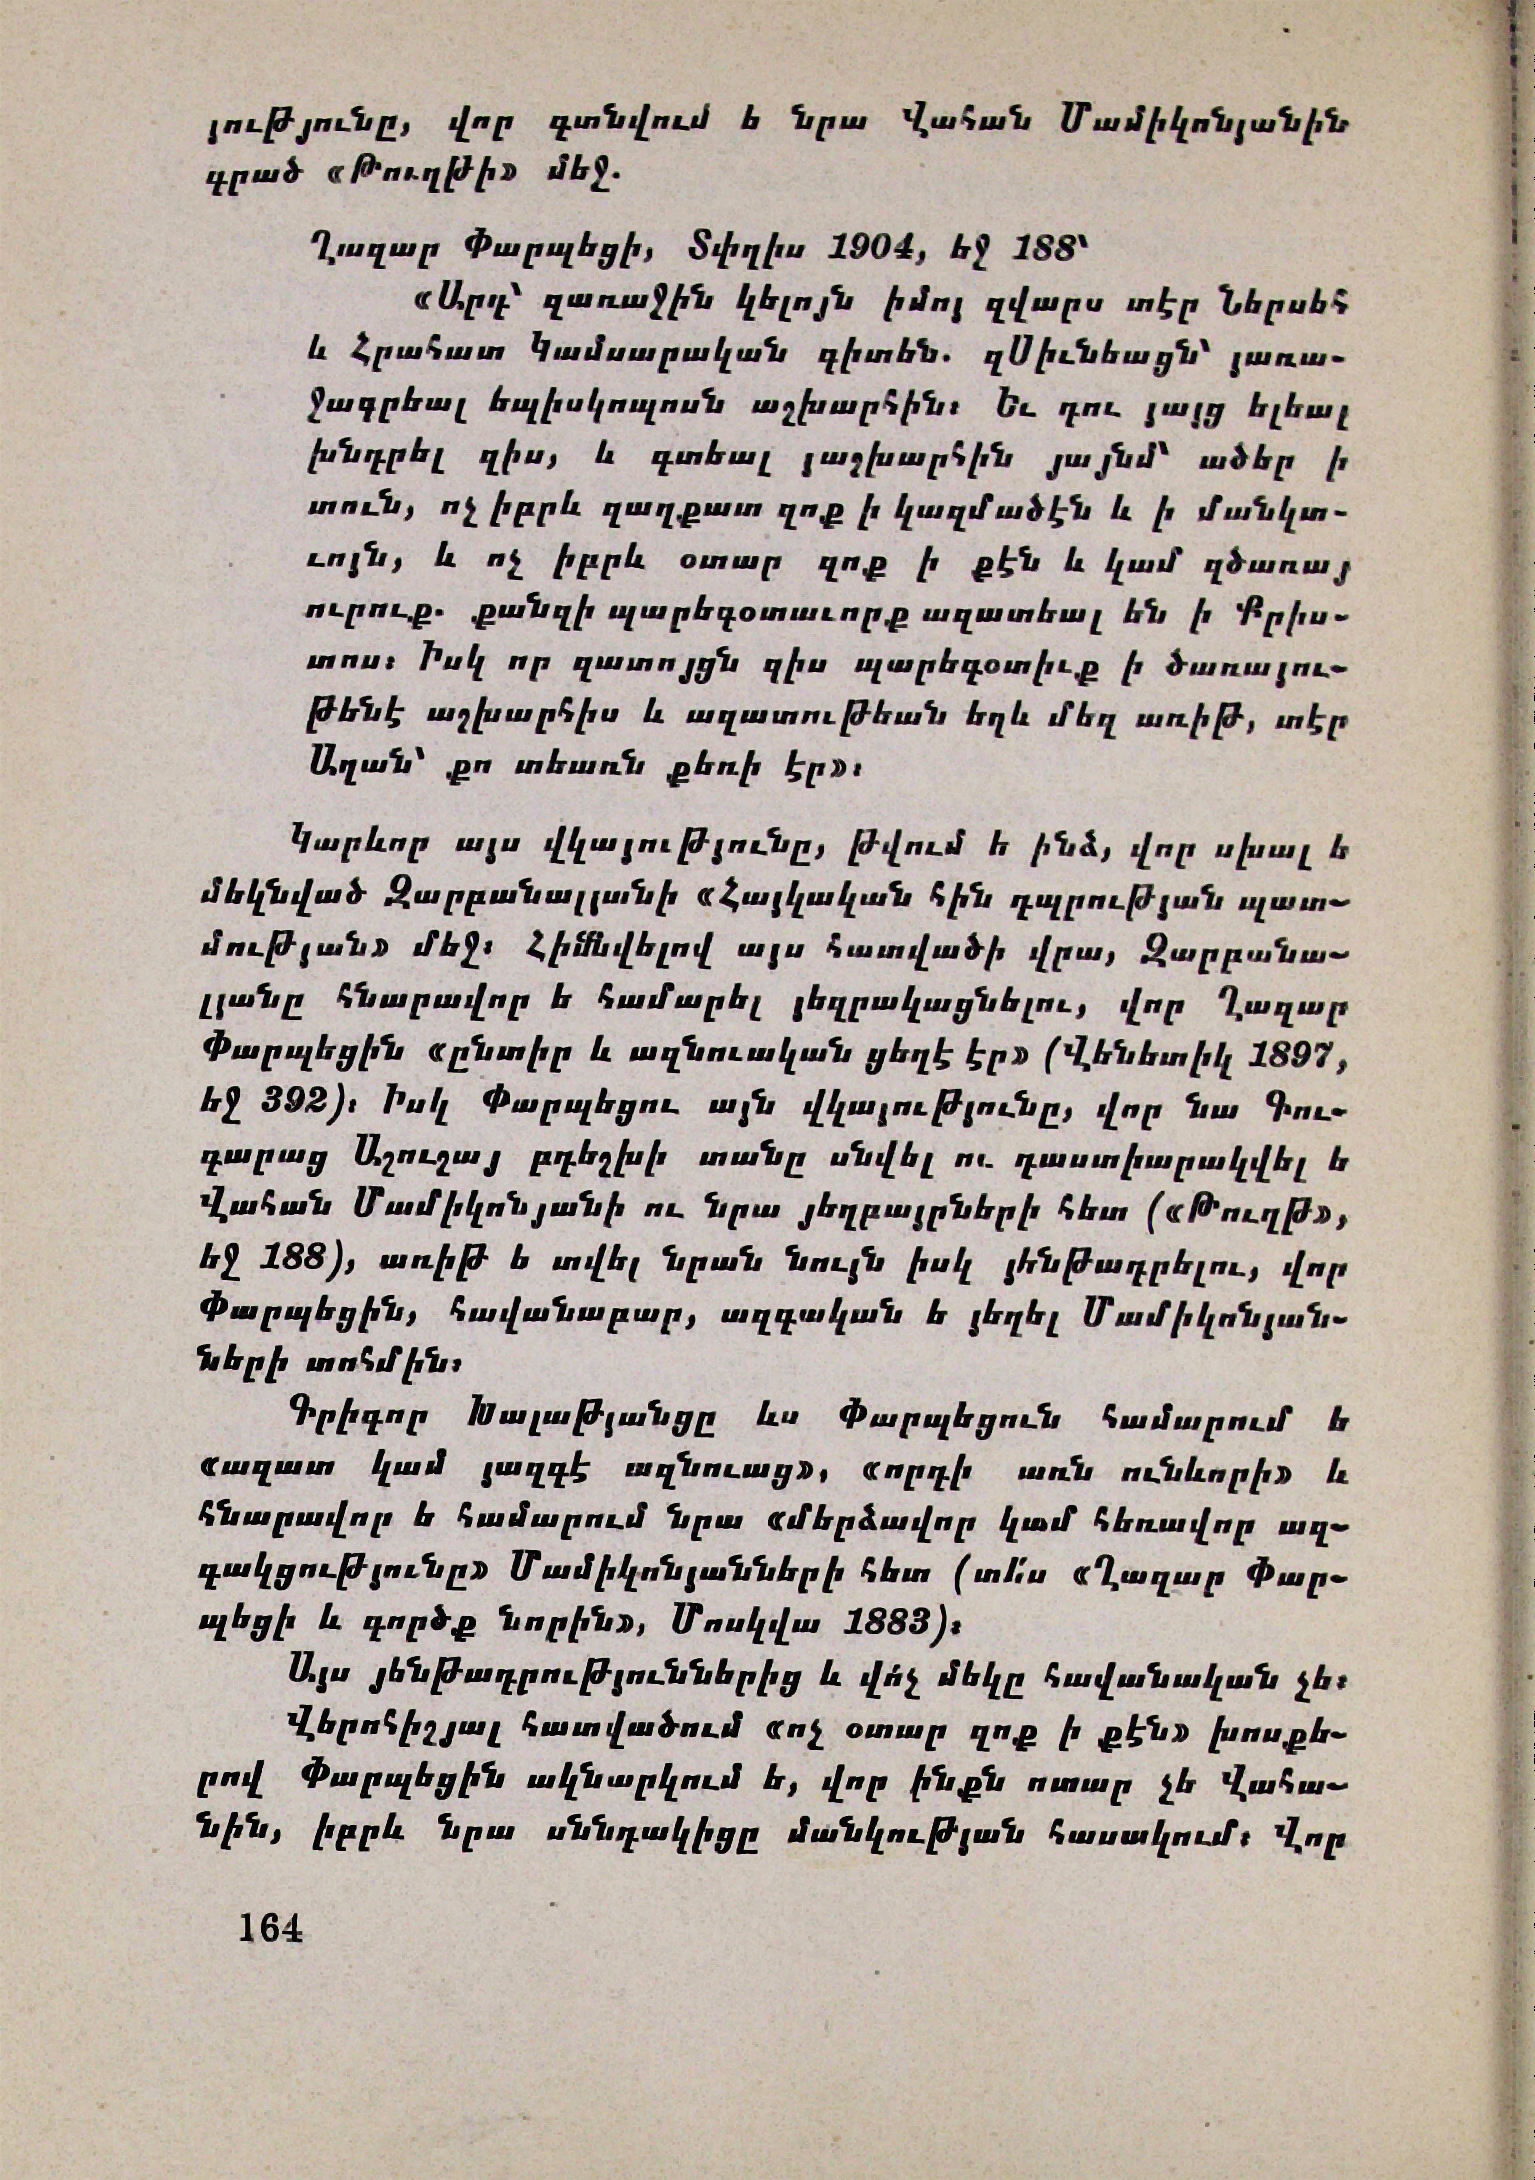 յությունը, վոր գտնվում ե նրա Վահան Մամիկոնյանին
գրած «Թուղթի» մեջ.
Ղազար Փարպեցի, Տփղիս 1904, եջ 188՝
«Արդ՝ զառաջին կելոյն իմոյ զվարս տէր Ներսեհ
և Հրահատ Կամսարական գիտեն. զՍիւնեացն՝ յառա-
ջագրեալ եպիսկոպոսն աշխարհին։ Եւ դու յայց ելեալ
խնդրել զիս, և գտեալ յաշխարհին յայնմ՝ ածեր ի
տուն, ոչ իբրև զաղքատ զոք ի կազմածէն և ի մանկտ-
ւոյն, և ոչ իբրև օտար զոք ի քէն և կամ զծառայ
ուրուք. քանզի պարեգօտաւորք ազատեալ են ի Քրիս-
տոս։ Իսկ որ զատոյցն զիս պարեգօտիւք ի ծառայու-
թենէ աշխարհիս և ազատութեան եղև մեզ առիթ, տէր
Աղան՝ քո տեառն քեռի էր»։
Կարևոր այս վկայությունը, թվում ե ինձ, վոր սխալ ե
մեկնված Զարբանալյանի «Հայկական հին դպրության պատ-
մության» մեջ։ Հիմնվելով այս հատվածի վրա, Զարբանա-
լյանը հնարավոր ե համարել յեզրակացնելու, վոր Ղազար
Փարպեցին «ընտիր և ազնուական ցեղէ էր» (Վենետիկ 1897,
եջ 392)։ Իսկ Փարպեցու այն վկայությունը, վոր նա Գու-
գարաց Աշուշայ բդեշխի տանը սնվել ու դաստիարակվել ե
Վահան Մամիկոնյանի ու նրա յեղբայրների հետ («Թուղթ»,
եջ 188), առիթ ե տվել նրան նույն իսկ յենթադրելու, վոր
Փարպեցին, հավանաբար, ազգական ե յեղել Մամիկոնյան-
ների տոհմին։
Գրիգոր Խալաթյանցը ևս Փարպեցուն համարում ե
«ազատ կամ յազգէ ազնուաց», «որդի առն ունևորի» և
հնարավոր ե համարում նրա «մերձավոր կամ հեռավոր ազ-
գակցությունը» Մամիկոնյանների հետ (տե՛ս «Ղազար Փար-
պեցի և գործք նորին», Մոսկվա 1883)։
Այս յենթադրություններից և վո՛չ մեկը հավանական չե։
Վերոհիշյալ հատվածում «ոչ օտար զոք ի քէն» խոսքե-
րով Փարպեցին ակնարկում ե, վոր ինքն ոտար չե Վահա-
նին, իբրև նրա սննդակիցը մանկության հասակում։ Վոր
164